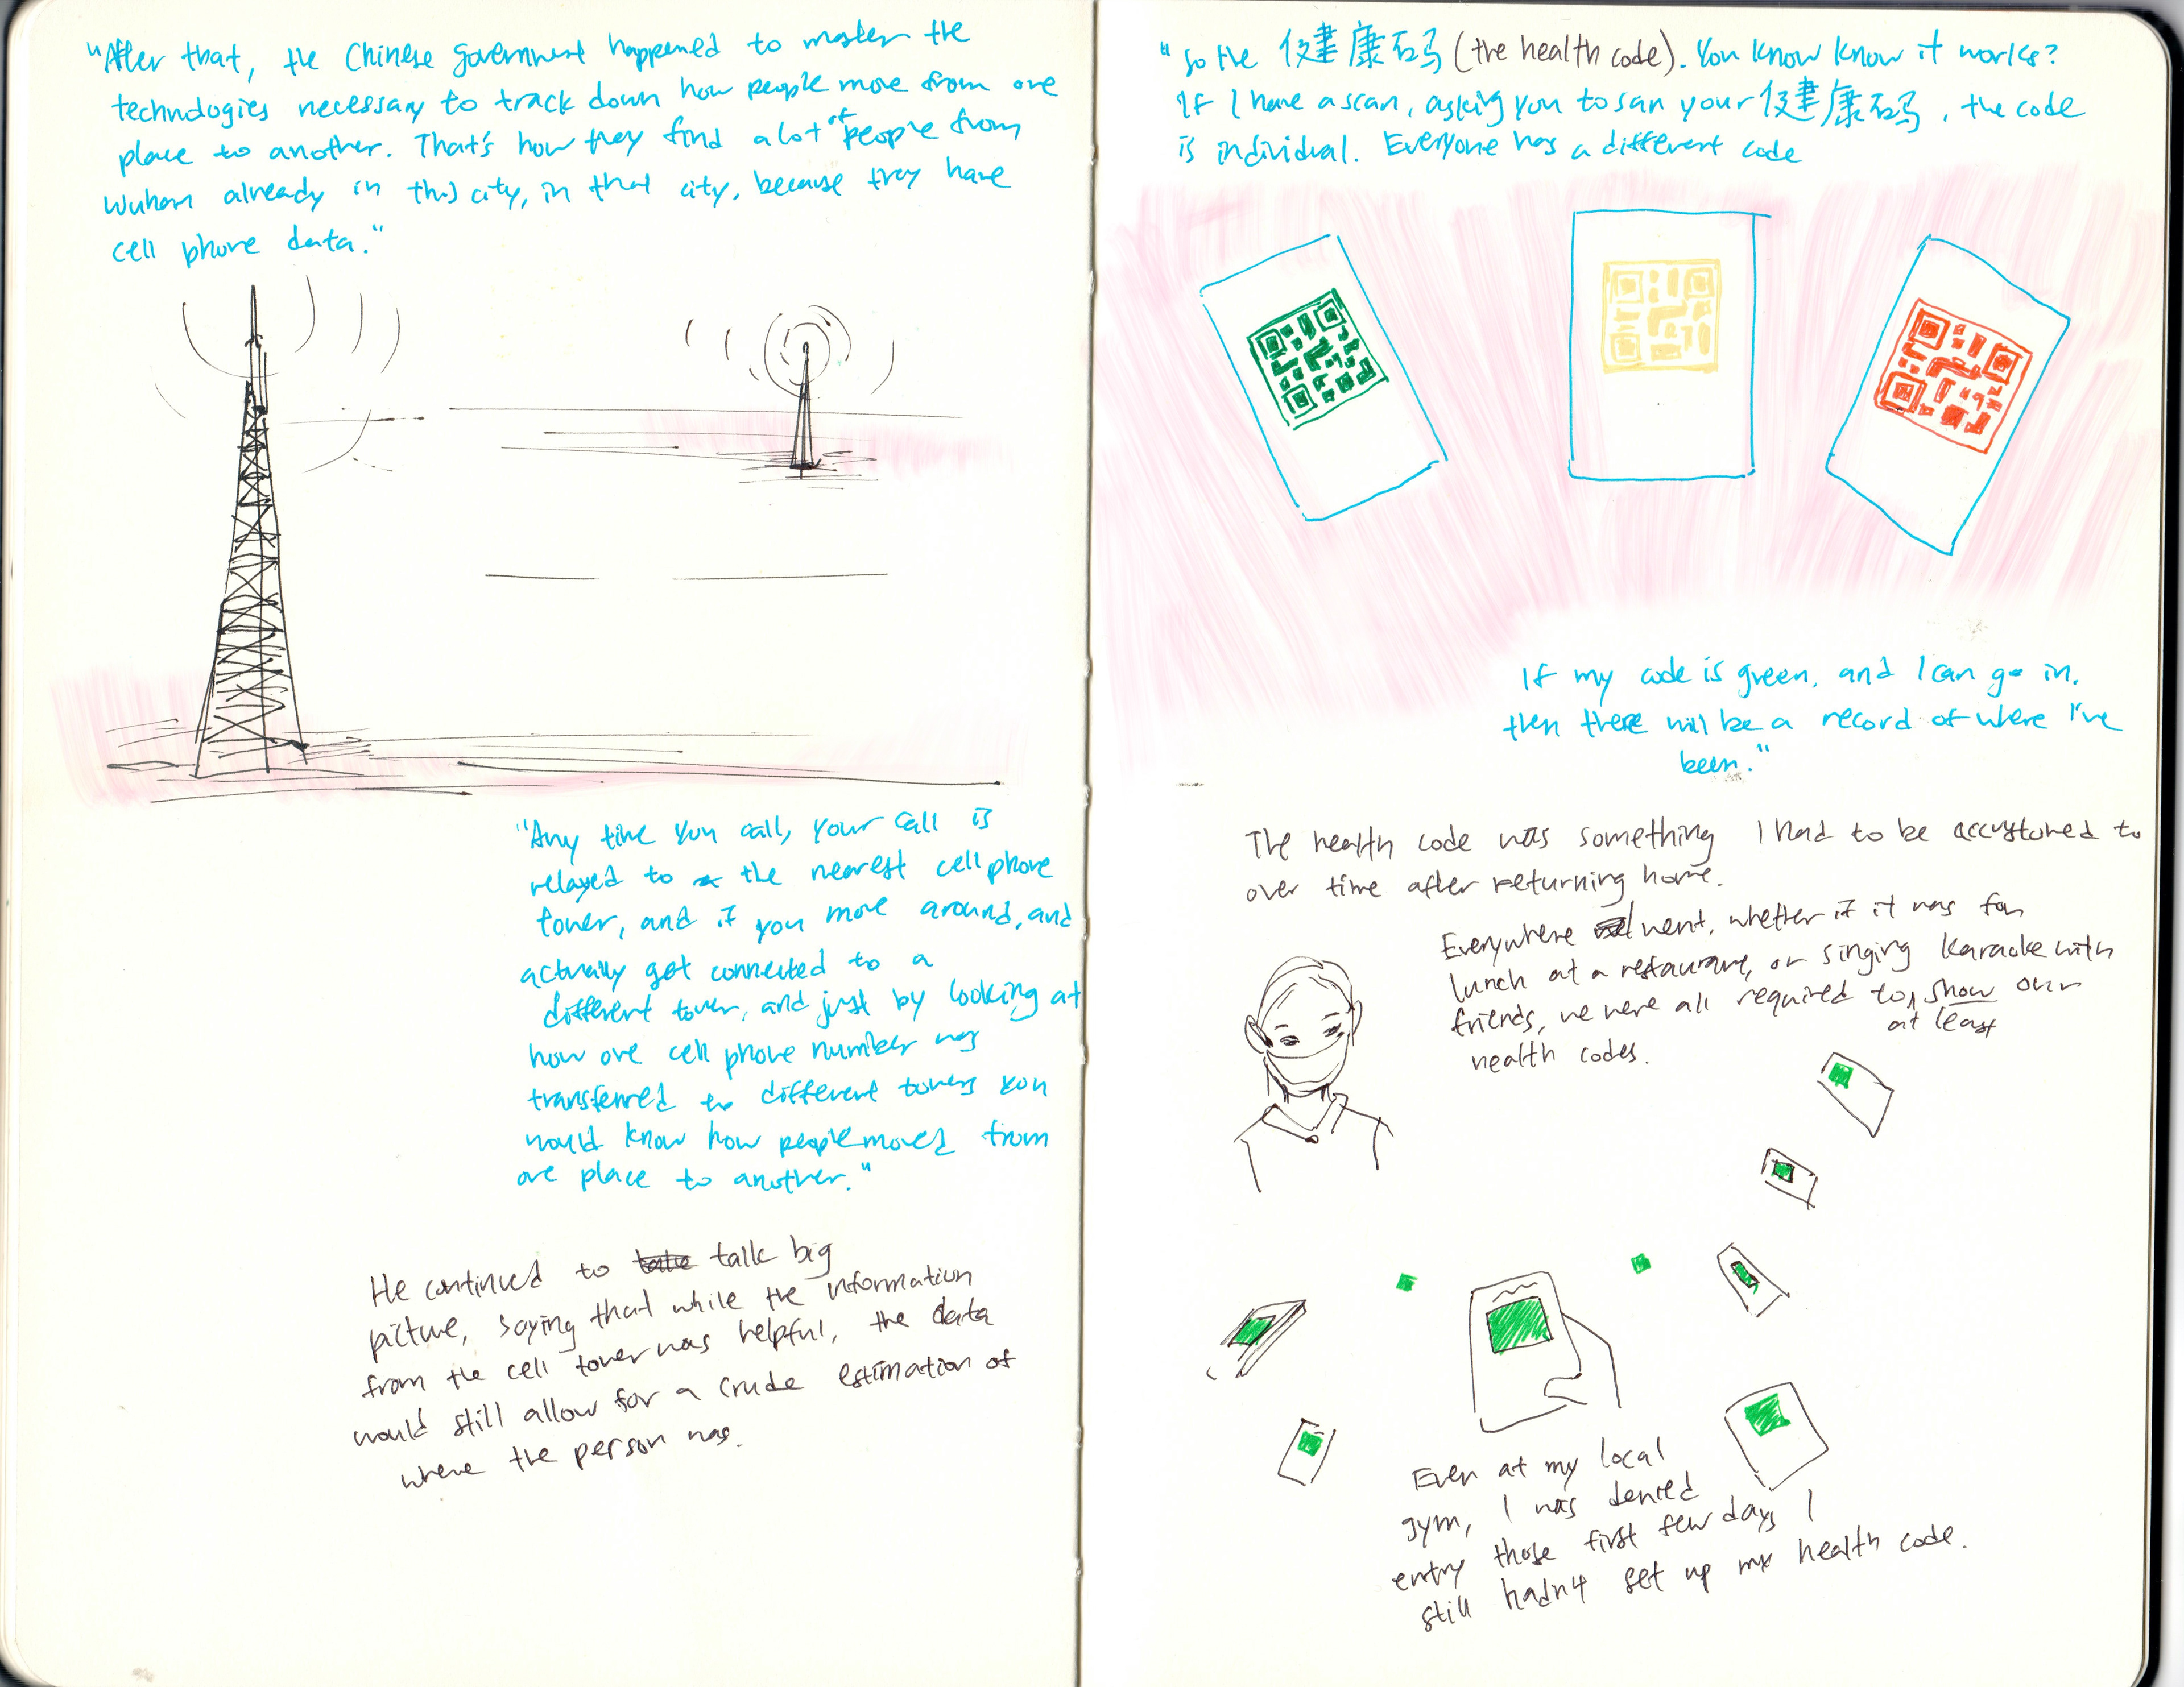 "After that, the Chinese government happened to master the
technologies necessary to track down how people move from one
place to another. That's how they find a lot of people from
Wuhan already in this city, in that city, because they have
cell phone data."
"Any time you call, your call is
relayed to the nearest cell phone
tower, and if you move around, and
actually get connected to a
different tower, and just by looking at
how one cell phone number was
transferred to different towers you
would know how people moved from
one place to another."
He continued to talk big
picture, saying that while the information
from the cell tower was helpful, the data
would still allow for a crude estimation of
where the person was.
"So the 健康码 (the health code). You know know it works?
If I have a scan, asking you to scan your 健康码, the code
is individual. Everyone has a different code
If my code is green, and I can go in,
then there will be a record of where I've
been."
The health code was something I had to be accustomed to
over time after returning home.
Everywhere I went, whether if it was for
lunch at a restaurant, or singing karaoke with
friends, we were all required to at least show our
health codes.
Even at my local
gym, I was denied
entry those first few days I
still hadn't set up my health code.